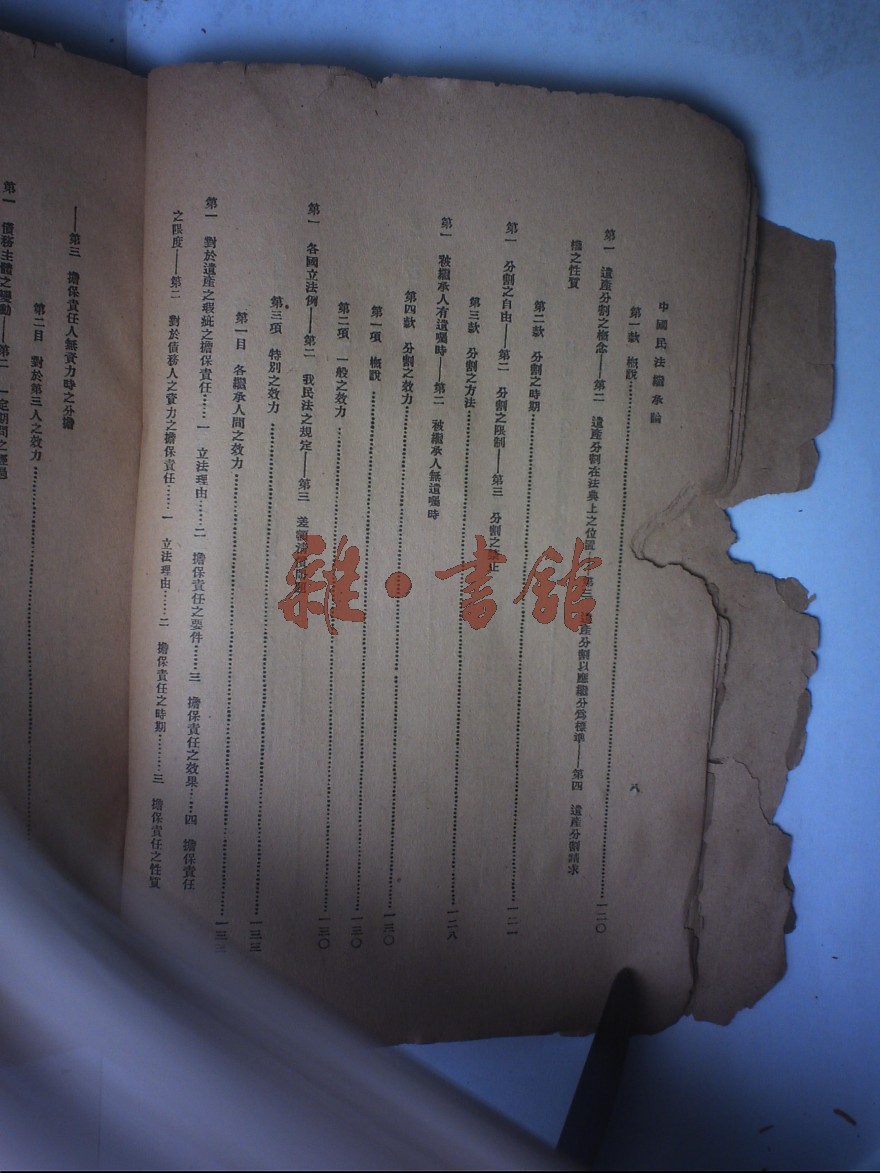 中國民法繼承論
八
第一款　概說……一二〇
第一　遺產分割之概念——第二　遺產分割在法典上之位置　第三　遺產分割以應繼分爲標準——第四　遺產分割請求
權之性質
第二款　分割之時期……一二一
第一　分割之自由——第二　分割之限制——第三　分割之　止
第三款　分割之方法……一二八
第一　被繼承人有遺囑時——第二　被繼承人無遺囑時
第四款　分割之效力……一三〇
第一項　概說……一三〇
第二項　一般之效力……一三〇
第一　各國立法例——第二　我民法之規定——第三　差額
第三項　特別之效力……一三三
第一目　各繼承人間之效力……一三三
第一　對於遺產之瑕疵之擔保責任……一　立法理由……二　擔保責任之要件……三　擔保責任之效果……四　擔保責任
之限度——第二　對於債務人之資力之擔保責任……一　立法理由……二　擔保責任之時期……三　擔保責任之性質
——第三　擔保責任人無資力時之分擔
第二目　對於第三人之效力……
第一　債務主體之變動——第二　一定期間之經過
雜·書館